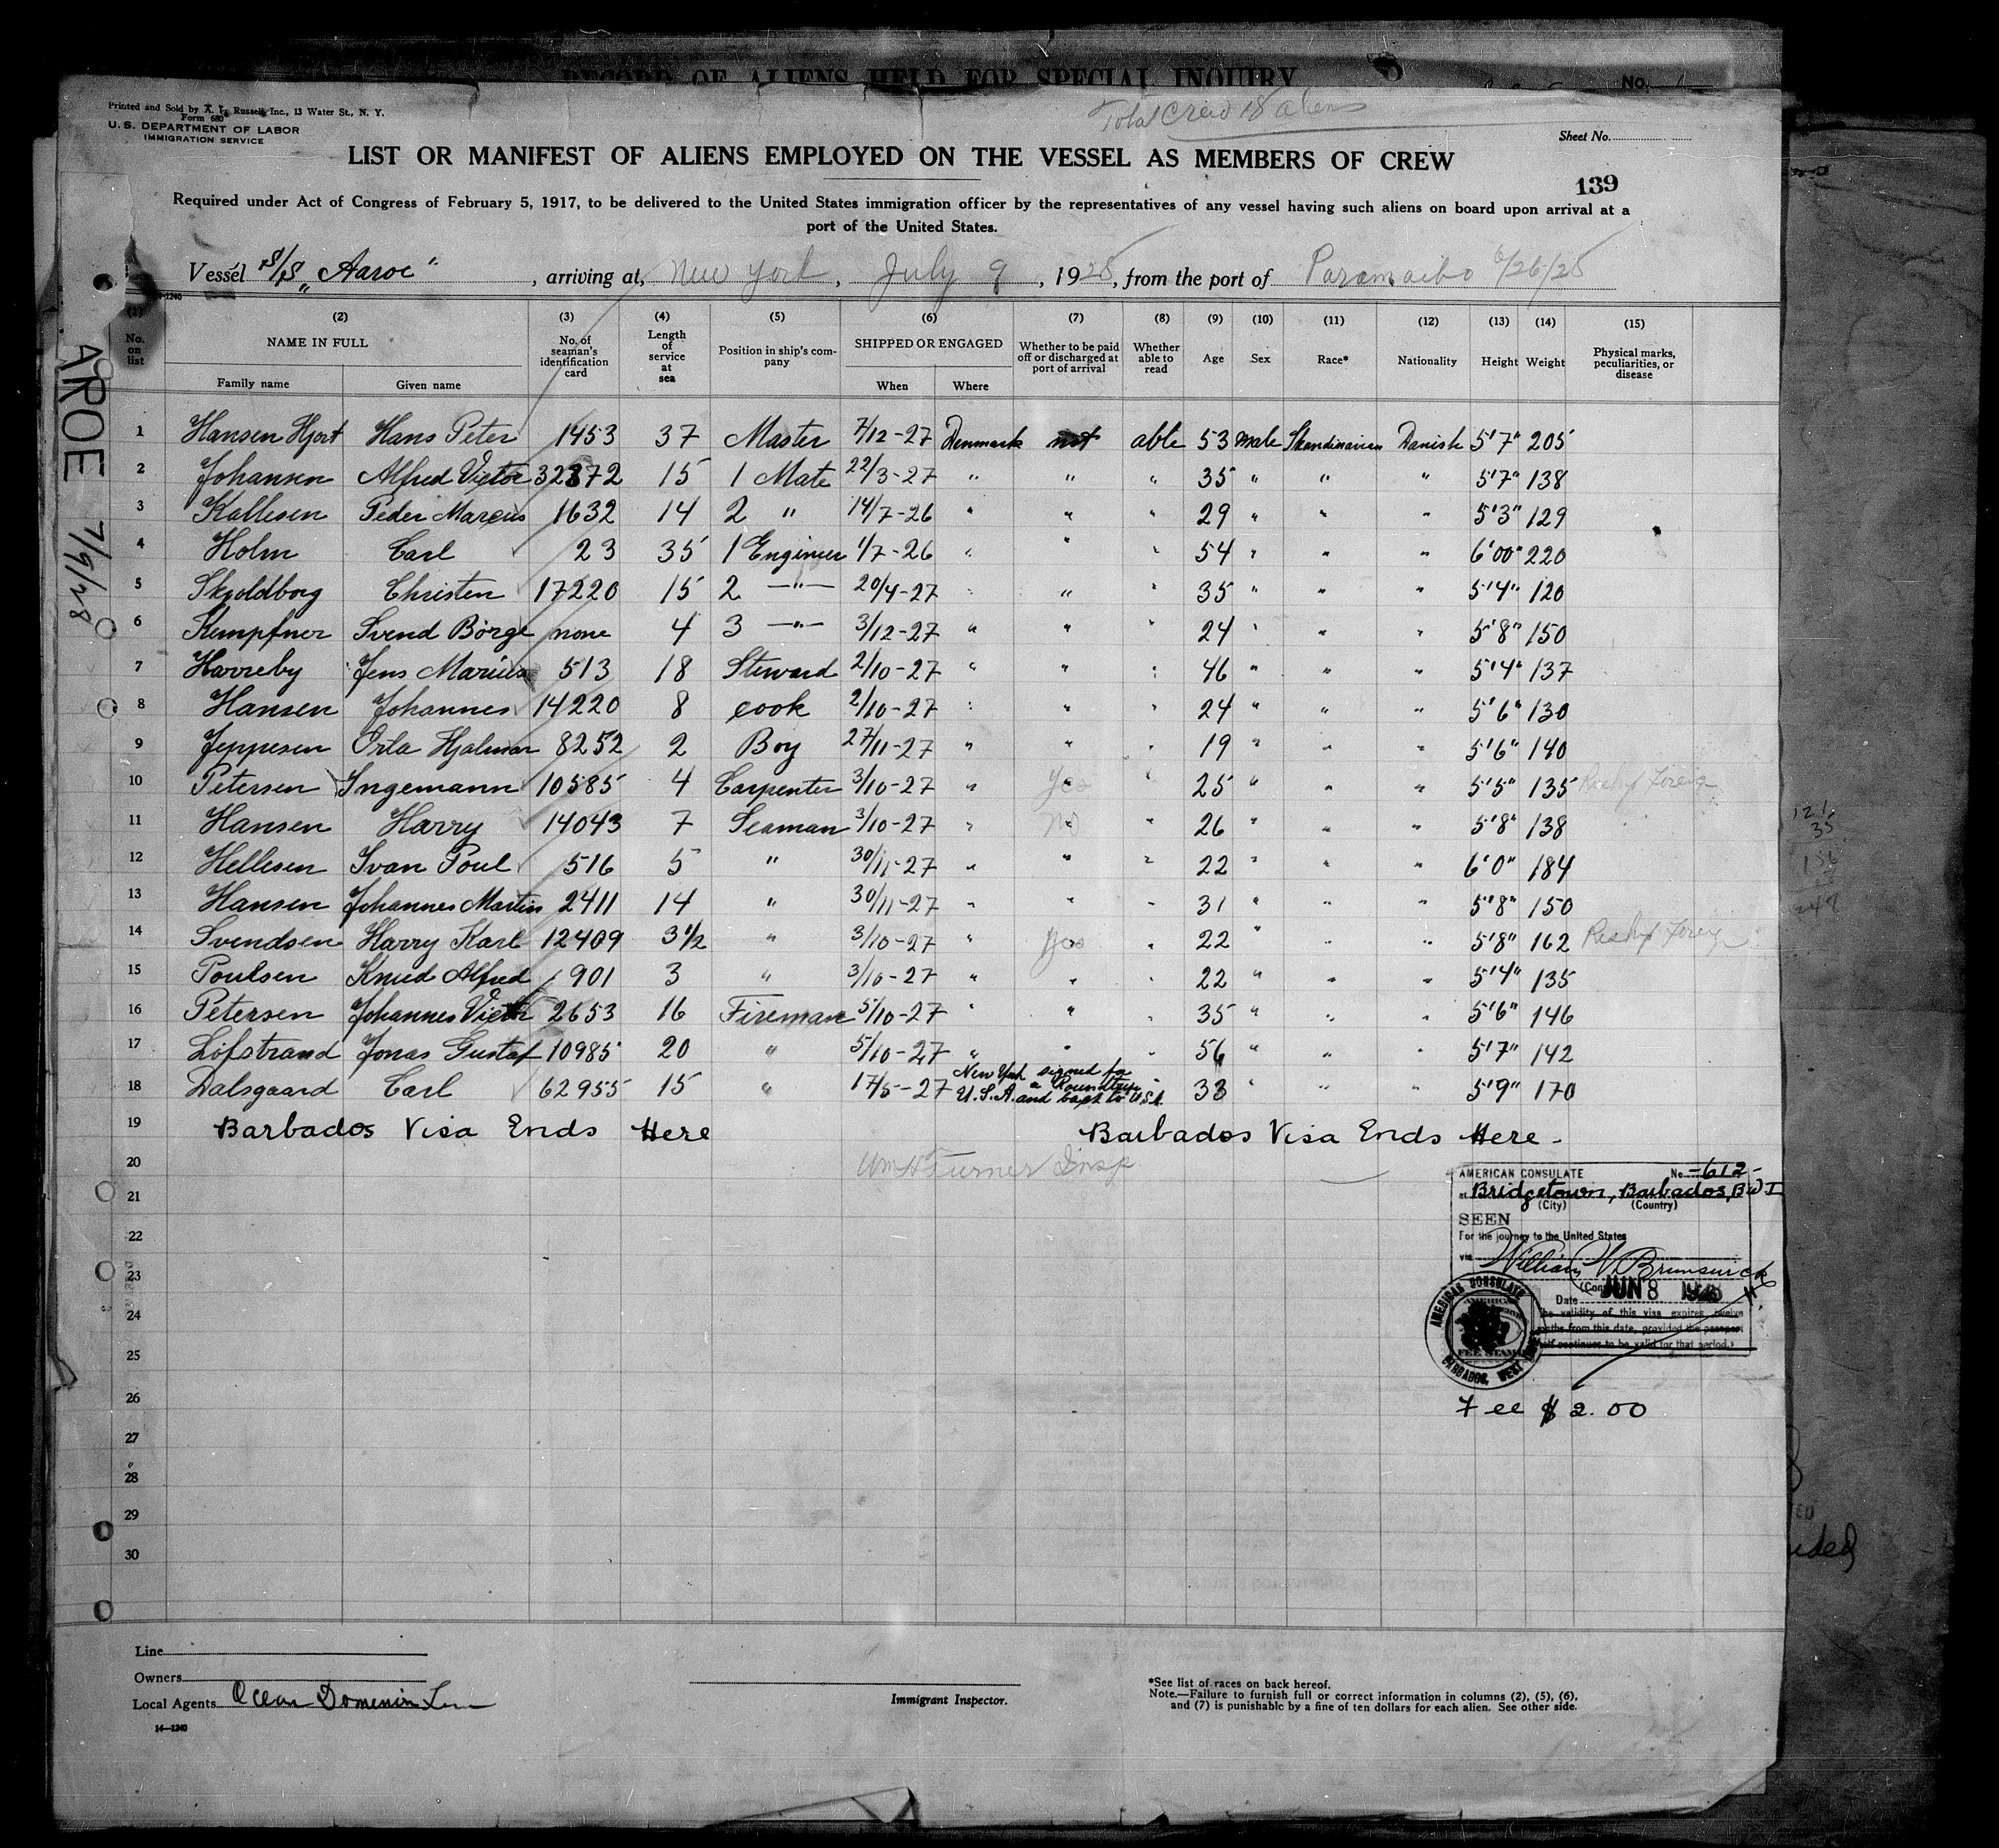 RECORD OF ALIENS HELD FOR SPECIAL INQUIRY
No. 1
Printed and Sold by A. L. Russell, Inc., 13 Water St., N. Y.
Form 680
U. S. DEPARTMENT OF LABOR
IMMIGRATION SERVICE
Total Crew 18 aliens
Sheet No.
LIST OR MANIFEST OF ALIENS EMPLOYED ON THE VESSEL AS MEMBERS OF CREW
139
Required under Act of Congress of February 5, 1917, to be delivered to the United States immigration officer by the representatives of any vessel having such aliens on board upon arrival at a
port of the United States.
Vessel S/S „Aaroe“, arriving at, New York, July 9, 1928, from the port of Paramaibo 6/26/28
AROE 7/9/28
14-1240
(1) No. on list
(2) NAME IN FULL Family name Given name
(3) No. of seaman's identification card
(4) Length of service at sea
(5) Position in ship's company
(6) SHIPPED OR ENGAGED When Where
(7) Whether to be paid off or discharged at port of arrival
(8) Whether able to read
(9) Age
(10) Sex
(11) Race*
(12) Nationality
(13) Height
(14) Weight
(15) Physical marks, peculiarities, or disease
1 Hansen Hjort Hans Peter 1453 37 Master 7/12-27 Denmark not able 53 male Skandinavien Danish 5'7" 205
2 Johansen Alfred Victor 32872 15 1 Mate 22/3-27 " " " 35 " " " 5'7" 138
3 Kallesen Peder Marcus 1632 14 2 " 14/7-26 " " " 29 " " " 5'3" 129
4 Holm Carl 23 35 1 Enginier 1/7-26 " " " 54 " " " 6'00" 220
5 Skjoldborg Christen 17220 15 2 —"— 20/4-27 " " " 35 " " " 5'4" 120
6 Kempfner Svend Börge none 4 3 —"— 3/12-27 " " " 24 " " " 5'8" 150
7 Harreby Jens Marius 513 18 Steward 2/10-27 " " " 46 " " " 5'4" 137
8 Hansen Johannes 14220 8 cook 2/10-27 " " " 24 " " " 5'6" 130
9 Jeppesen Orla Hjalmar 8252 2 Boy 27/11-27 " " " 19 " " " 5'6" 140
10 Petersen Ingemann 10585 4 Carpenter 3/10-27 " Yes " 25 " " " 5'5" 135 Reship Foreign
11 Hansen Harry 14043 7 Seaman 3/10-27 " No " 26 " " " 5'8" 138
12 Hellesen Ivan Poul 516 5 " 30/11-27 " " " 22 " " " 6'0" 184
13 Hansen Johannes Martin 2411 14 " 30/11-27 " " " 31 " " " 5'8" 150
14 Svendsen Harry Karl 12409 3½ " 3/10-27 " Yes " 22 " " " 5'8" 162 Reship Foreign
15 Poulsen Knud Alfred 901 3 " 3/10-27 " " " 22 " " " 5'4" 135
16 Petersen Johannes Victor 2653 16 Fireman 5/10-27 " " " 35 " " " 5'6" 146
17 Löfstrand Jonas Gustaf 10985 20 " 5/10-27 " " " 56 " " " 5'7" 142
18 Dalsgaard Carl 62955 15 " 17/5-27 New York U.S.A. signed for a Roundtrip and back to U.S.A. " 33 " " " 5'9" 170
19 Barbados Visa Ends Here Barbados Visa Ends Here -
20 Wm H Turner Insp
21
22
23
24
25
26
27
28
29
30
AMERICAN CONSULATE No. -612-
at Bridgetown, Barbados, B W I
(City) (Country)
SEEN
For the journey to the United States
via
William W. Brunswick
(Con
Date JUN 8 1928
The validity of this visa expires twelve
months from this date, provided the passport
itself continues to be valid for that period.
AMERICAN CONSULATE
BARBADOS, WEST
FEE STAMP
Fee $ 2.00
121
35
248
uded
Line
Owners
Local Agents
Immigrant Inspector.
*See list of races on back hereof.
Note.—Failure to furnish full or correct information in columns (2), (5), (6),
and (7) is punishable by a fine of ten dollars for each alien. See other side.
14—1240